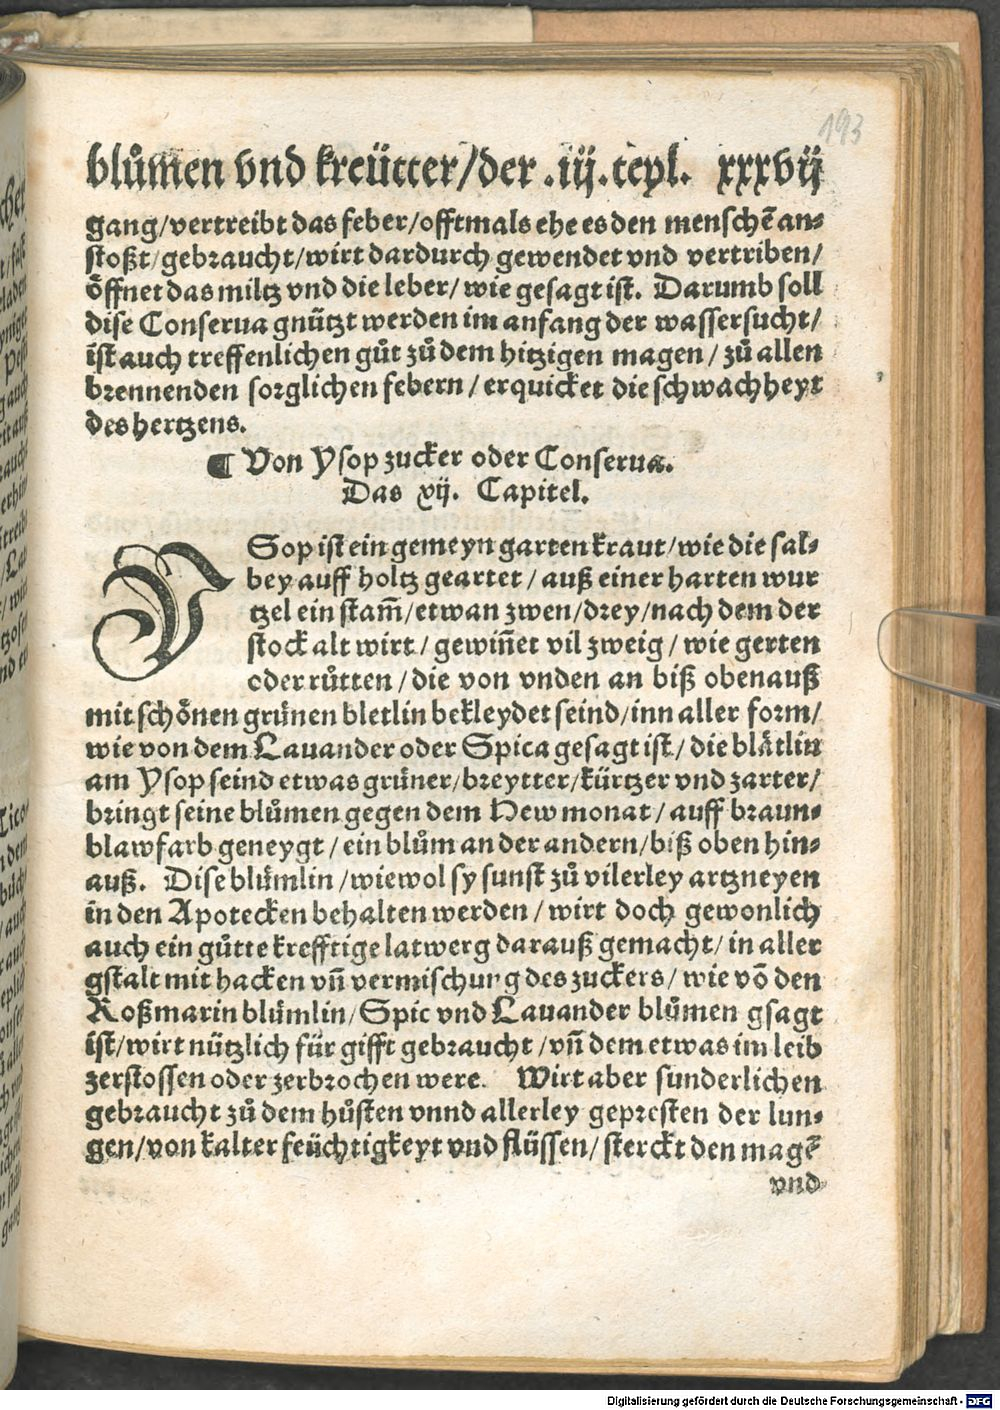 193
blůmen vnd kreütter/der .iij.teyl. xxxvij
gang/vertreibt das feber/offtmals ehe es den menschē an⸗
stoßt/gebraucht/wirt dardurch gewendet vnd vertriben/
öffnet das miltz vnd die leber/wie gesagt ist. Darumb soll
dise Conserua gnützt werden im anfang der wassersucht/
ist auch treffenlichen gůt zů dem hitzigen magen/zů allen
brennenden sorglichen febern/erquicket die schwachheyt
des hertzens.
¶ Von Ysop zucker oder Conserua.
Das xij. Capitel.
YSop ist ein gemeyn garten kraut/wie die sal⸗
bey auff holtz geartet/auß einer harten wur
tzel ein stam̄/etwan zwen/drey/nach dem der
stock alt wirt/gewiñet vil zweig/wie gerten
oder růtten/die von vnden an biß obenauß
mit schönen grünen bletlin bekleydet seind/inn aller form/
wie von dem Lauander oder Spica gesagt ist/die blätlin
am Ysop seind etwas grüner/breytter/kürtzer vnd zarter/
bringt seine blůmen gegen dem Hewmonat/auff braun⸗
blawfarb geneygt/ein blům an der andern/biß oben hin⸗
auß. Dise blümlin/wiewol sy sunst zů vilerley artzneyen
in den Apotecken behalten werden/wirt doch gewonlich
auch ein gůtte krefftige latwerg darauß gemacht/in aller
gstalt mit hacken vñ vermischung des zuckers/wie vō den
Roßmarin blümlin/Spic vnd Lauander blůmen gsagt
ist/wirt nützlich für gifft gebraucht/vñ dem etwas im leib
zerstossen oder zerbrochen were. Wirt aber sunderlichen
gebraucht zů dem hůsten vnnd allerley gepresten der lun⸗
gen/von kalter feüchtigkeyt vnd flüssen/sterckt den magē
vnd
Digitalisierung gefördert durch die Deutsche Forschungsgemeinschaft - DFG